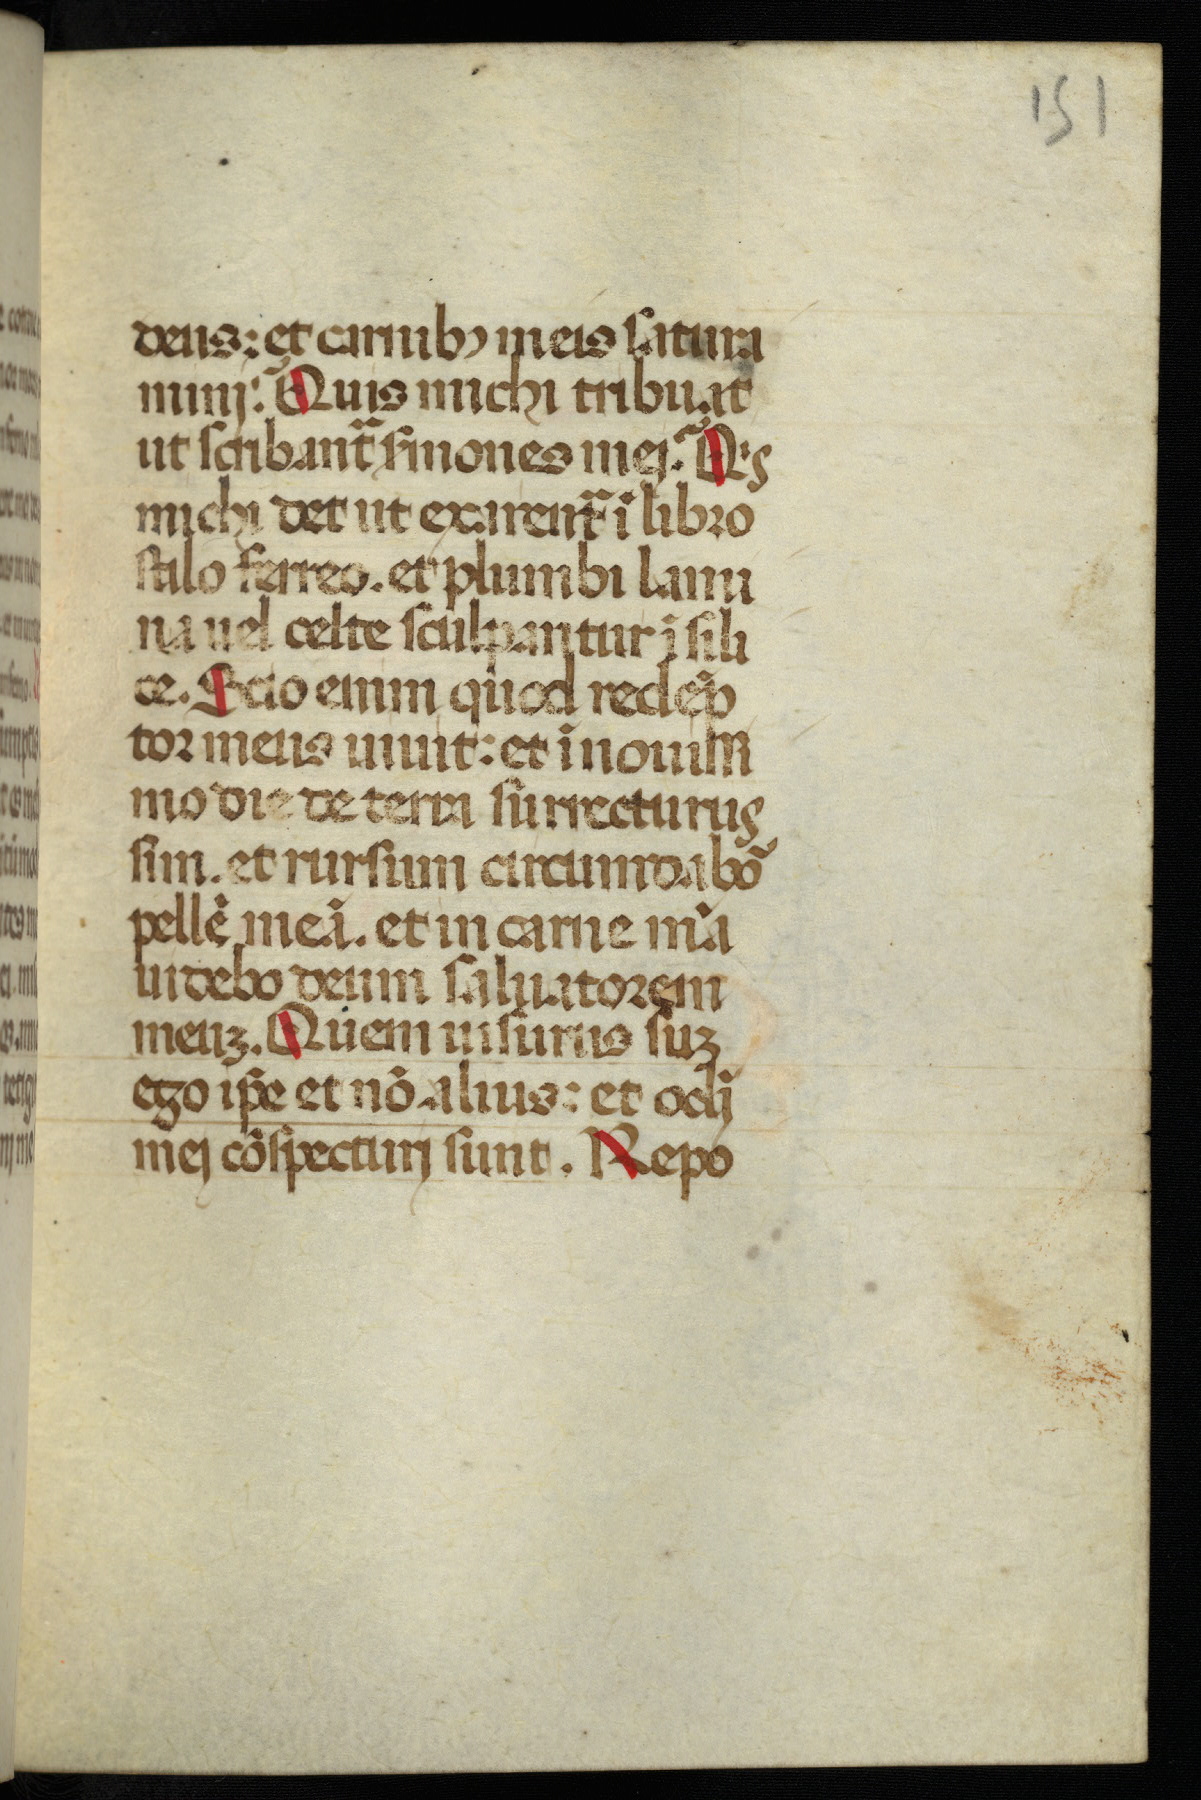 151
deus: et carnibꝯ meis satura
minj: Quis michi tribuat
ut scribant᷑ s̃mones mej. Qͥs
michi det ut exarent᷑ ĩ libro
stilo ferreo. et plumbi lami
na uel celte sculpantur ĩ sili
ce. Scio enim quod redẽp
tor meus uiuit: et ĩ nouissi
mo die de terra surrecturus
sum. et rursum circumdabõ
pellẽ meã. et in carne mẽa
uidebo deum saluatorem
meuʒ. Quem uisurus suʒ
ego ip̃e et nõ alius: et oclj
mej cõspecturj sunt. Repo